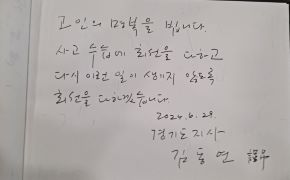 고인의 명복을 빕니다.
사고 수습에 최선을 다하고
다시 이런 일이 생기지 않도록
최선을 다하겠습니다.
2024.6.29.
경기도지사
김동연